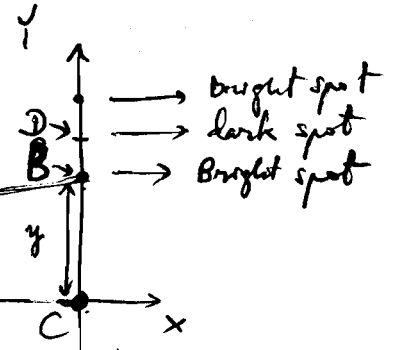 Y
bright spot
D dark spot
B Bright spot
y
C X